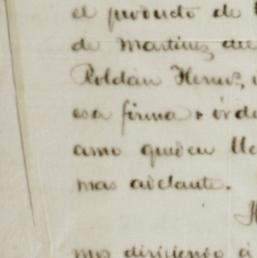 el producto de
de Martinez de
Roldán Herms.,
esa firma
amo queden
mas adelante.
mos dirigiendo á